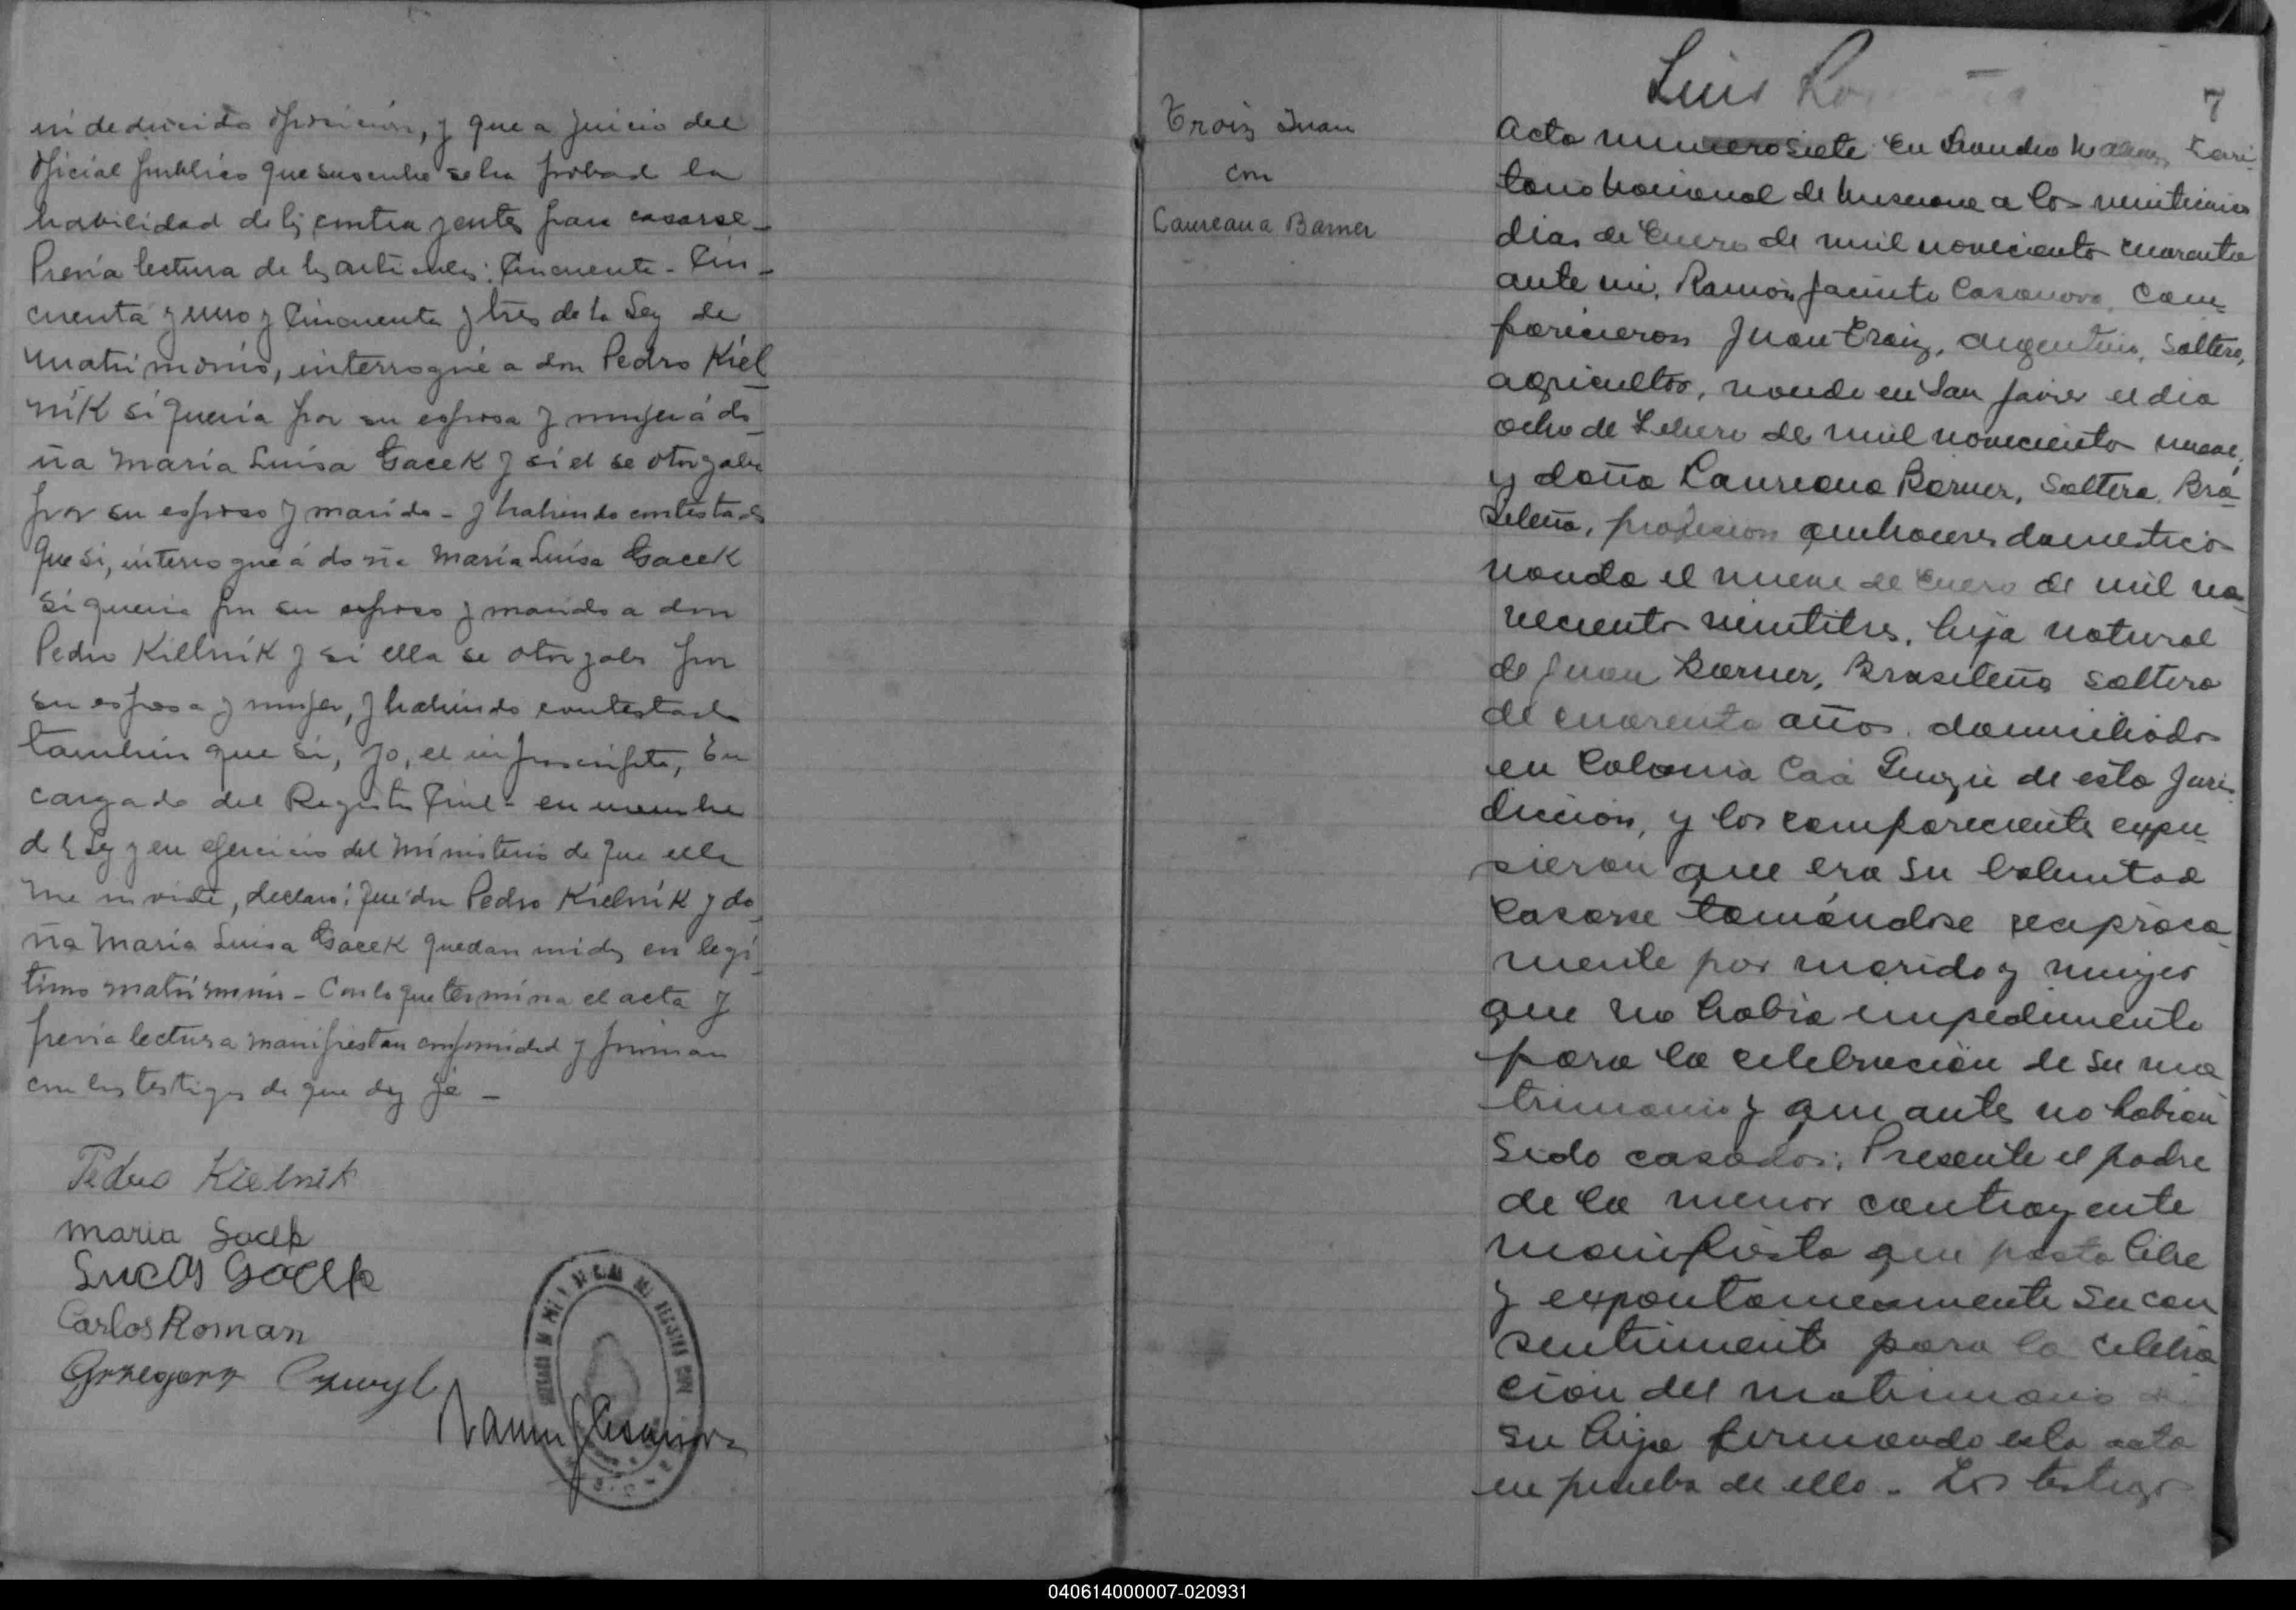 deducido oposición, y que a juicio del
oficial publico que suscribe se ha probad la
habilidad de ls contrayentes para casarse_
Previa lectura de ls articulos: Cincuenta - Cin_
cuenta y uno y Cincuenta y tres de la Ley de
matrimonio, interrogué a don Pedro Kiel_
nik si queria por su esposa y mujer á do_
ña María Luísa Gacek y si el se otorgaba
por su esposo y marido - y habiendo contestado
que si, interrogué á doña María Luísa Gacek
si queria por su esposo y marido a don
Pedro Kielnik y si ella se otorgaba por
su esposa y mujer, y habiendo contestado
tambien que si, yo, el infrascripto, En
cargado del Registro Civil - en nombre
de la Ley y en ejercicio del Ministerio de que ella
me inviste, declaro: que don Pedro Kielnik y do_
ña María Luísa Gacek quedan unidos en legí_
timo matrimonio - Con lo que termina el acta y
previa lectura manifiestan conformidad y firman
con los testigos de que doy fé -
Pedro Kielnik
Maria Gacek
Lucas Gacek
Carlos Roman
Grzegorz
Ramon J Casanova
Luis
7
Troiz Juan
con
Laureana Barner
Acta numero siete En Leandro N Alem, Terri
torio Nacional de Misiones a los
dias de Enero de mil novecientos cuarenta
ante mi, Ramón Jacinto Casanova, Com_
parecieron Juan Troiz, argentino, Soltero,
agricultor, nacido en San Javier el dia
ocho de Febrero de mil novecientos nueve,
y doña Laureana Barner, Soltera, Bra_
sileña, profesion quehaceres domesticos
nacida el nueve de Enero de mil no_
vecientos veintitres, hija natural
de Juan Barner, Brasileño soltero
de cuarenta años, domiciliado
en Colonia Caá Guazú de esta Juris
dicción, y los comparecientes expu_
sieron que era su voluntad
Casarse tomándose reciproca_
mente por marido y mujer
que no había impedimento
para la celebración de su ma
trimonio y que antes no habian
Sido casados; Presente el padre
de la menor contrayente
manifiesta que presta libre
y expontaneamente su con
sentimiento para la celebra
ción del matrimonio de
su hija firmando esta acta
en prueba de ello - Los testigos
040614000007-020931